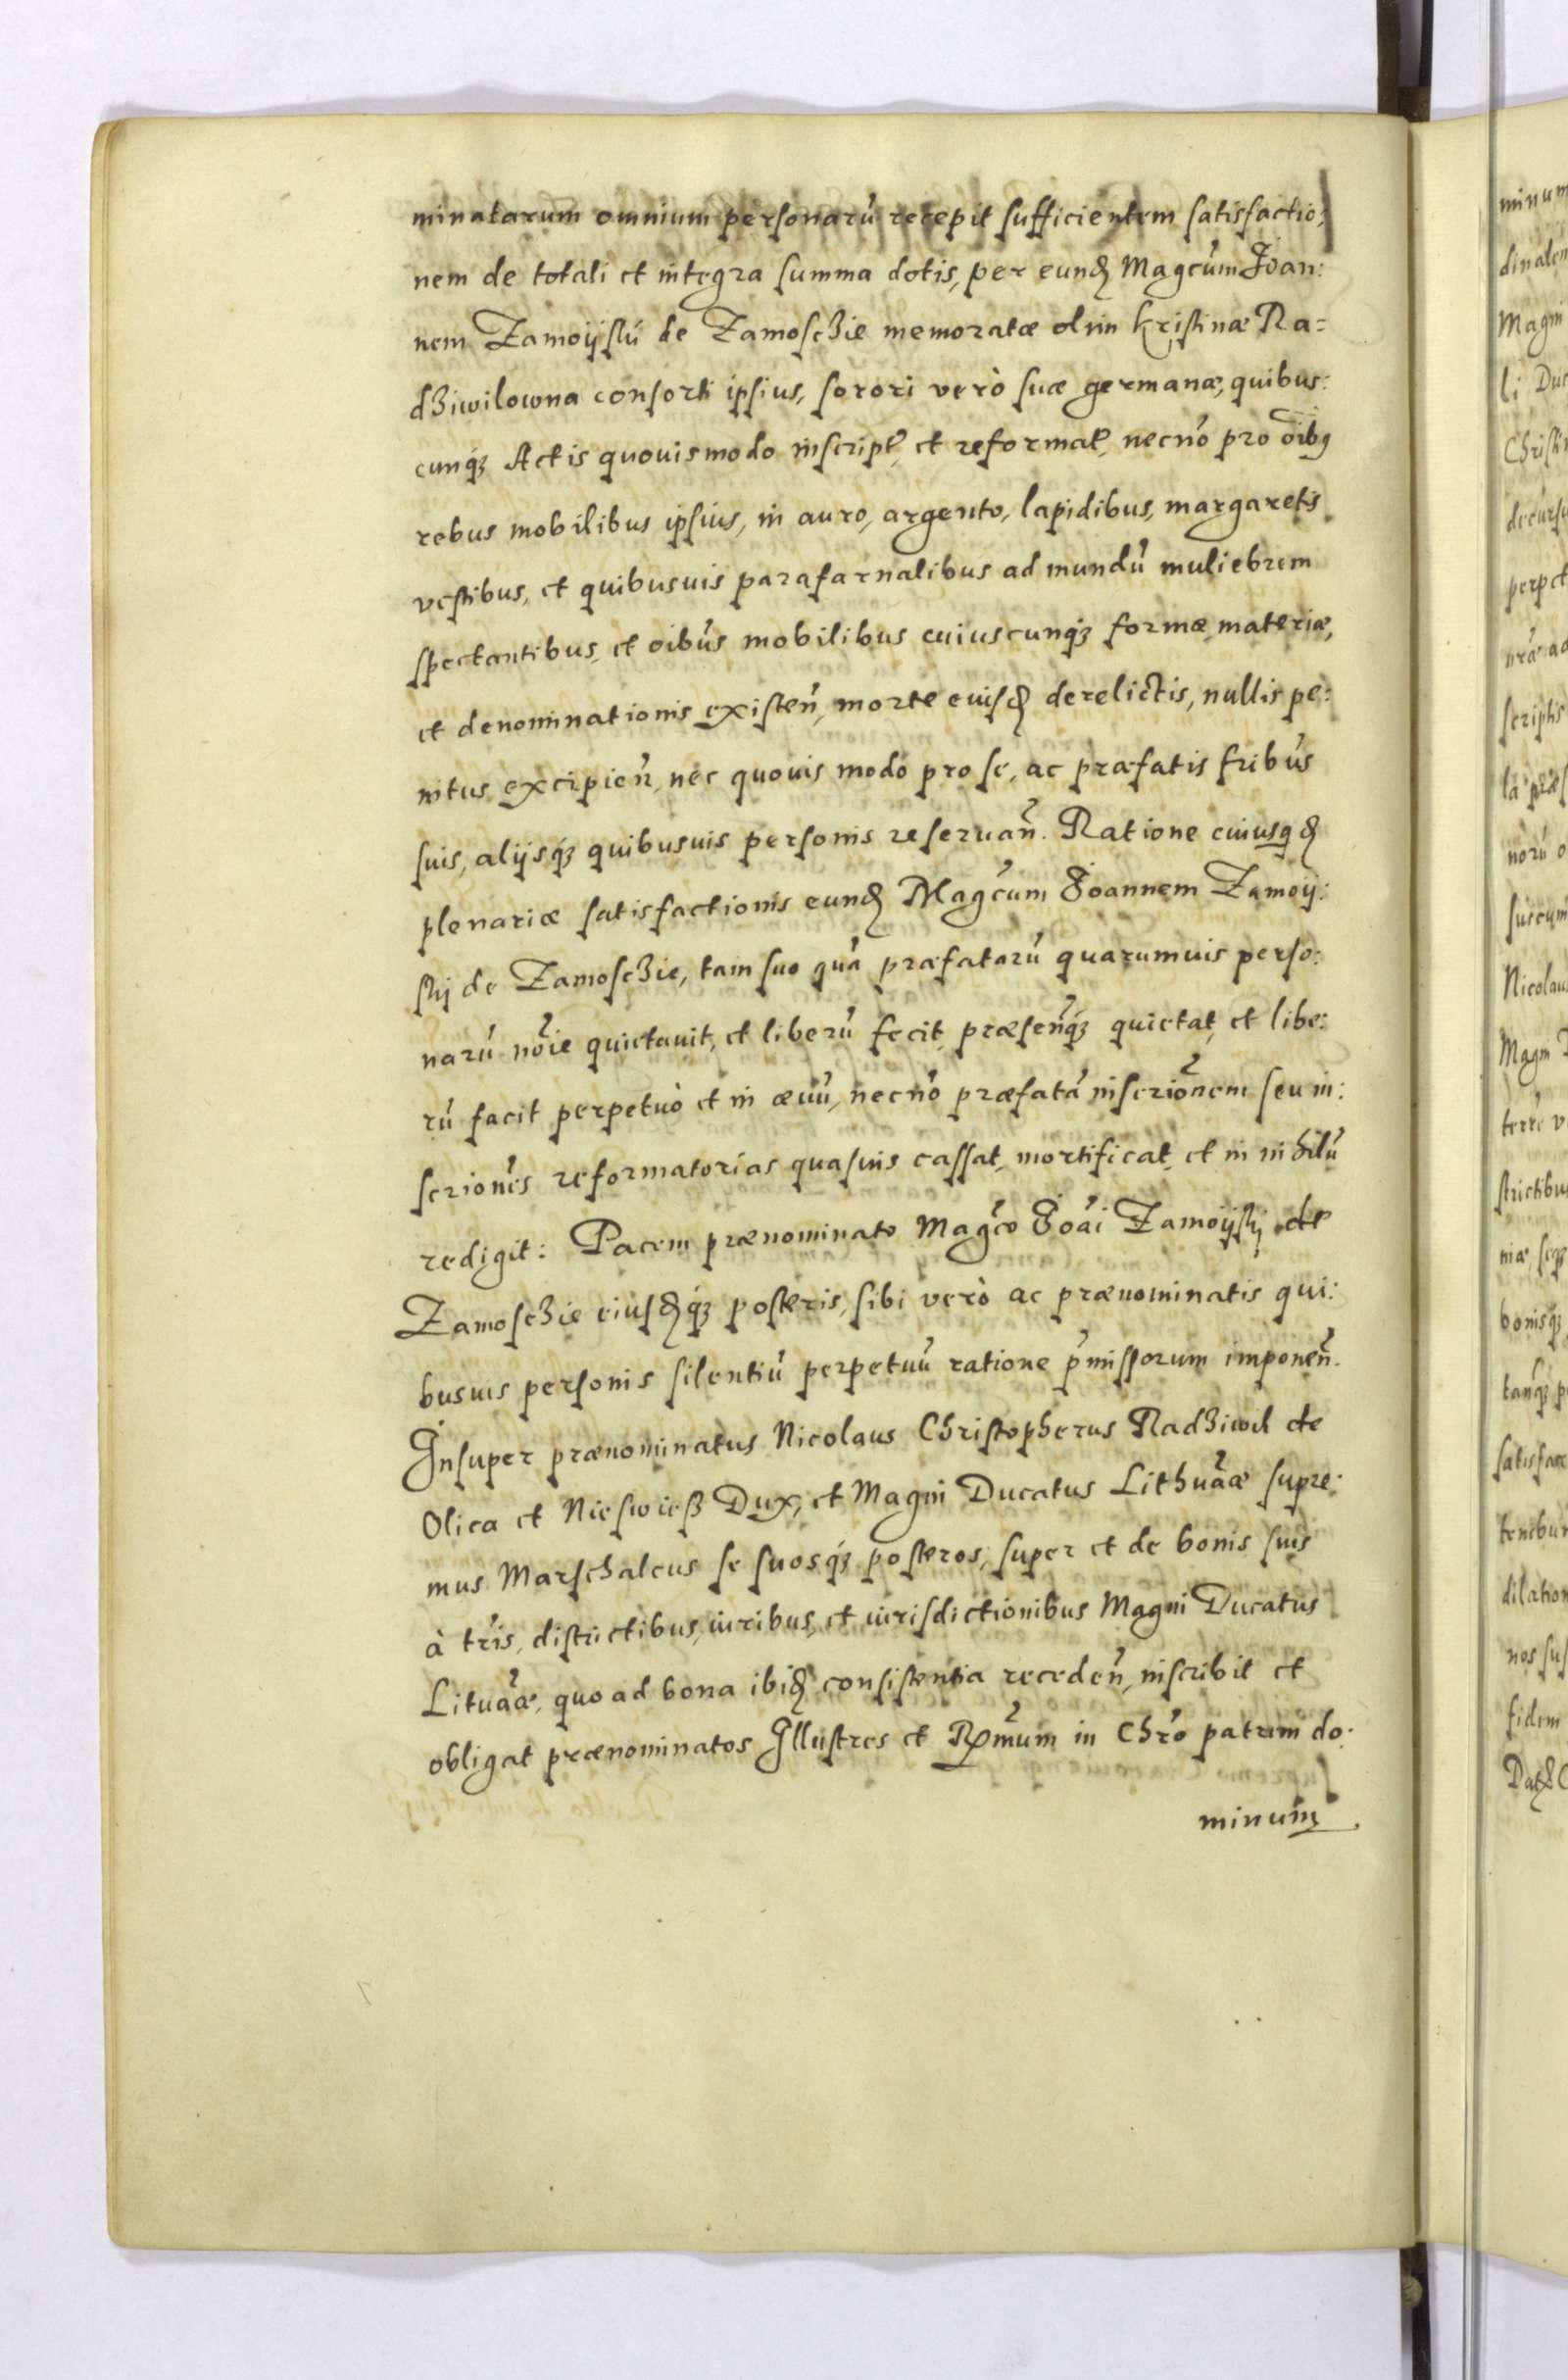 minatarum omnium personarũ recepit sufficientem satisfactio:
nem de totali et integra summa dotis, per eundẽ Magcũm Joan:
nem Zamoÿskĩ de Zamosczie memoratæ olim Kristinæ Ra=
dziwilowna consorti ipsius, sorori verò suæ germanæ, quibus:
cunq́ʒ Actis quouismodo inscript̃, et reformat̃, necnõ pro õibꝰ
rebus mobilibus ipsius, in auro, argento, lapidibus, margaretis
vestibus, et quibusuis parafarnalibus ad mundũ muliebrem
spectantibus, et oibũs mobilibus cuiuscunq́ʒ formæ, materiæ,
et denominationis existeñ, morte euisdẽ derelictis, nullis pe:
nitus excipieñ, nec quouis modo pro se, ac præfatis fribũs
suis, alijsq́ʒ quibusuis personis reseruañ. Ratione cuiusqdẽ
plenariæ satisfactionis eundẽ Magcũm Joannem Zamoÿ:
skj de Zamosczie, tam suo quã præfatarũ quarumuis perso:
narũ noĩe quietauit, et liberũ fecit, præseñq́ʒ quietat, et libe:
rũ facit perpetuò et in æuũ, necnõ præfatã inscriõnem seu in:
scrionẽs reformatorias quasuis cassat, mortificat, et in nihilũ
redigit: Pacem prænominato Magcõ Joãi Zamoÿskj de
Zamosczie eiusdẽq́ʒ posteris, sibi verò ac prænominatis qui:
busuis personis silentiũ perpetuũ ratione p̃missorum imponeñ.
Insuper prænominatus Nicolaus Christopherus Radziwil de
Olica et Nieswieß Dux, et Magni Ducatus Lithuãæ supre:
mus Marschalcus se suosq́ʒ posteros, super et de bonis suis
à trĩs, districtibus, iuribus, et iurisdictionibus Magni Ducatus
Lituãæ, quo ad bona ibidẽ consistentia recedeñ, inscribit et
obligat prænominatos Illustres et Rm̃um in Chrõ patrem do:
minum